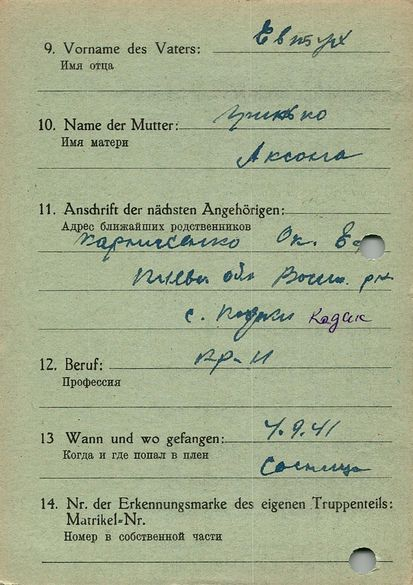 9. Vorname des Vaters: Евтух
Имя отца
10. Name der Mutter: Гринько
Имя матери
Аксон
11. Anschrift der nächsten Angehörigen:
Адрес ближайших родственников
Харниченко Ок. Е
Киевск обл
с. Кодаки Кодак
12. Beruf: кр-н
Профессия
13 Wann und wo gefangen: 4.9.41
Когда и где попал в плен
Сосница
14. Nr. der Erkennungsmarke des eigenen Truppenteils:
Matrikel-Nr.
Номер в собственной части